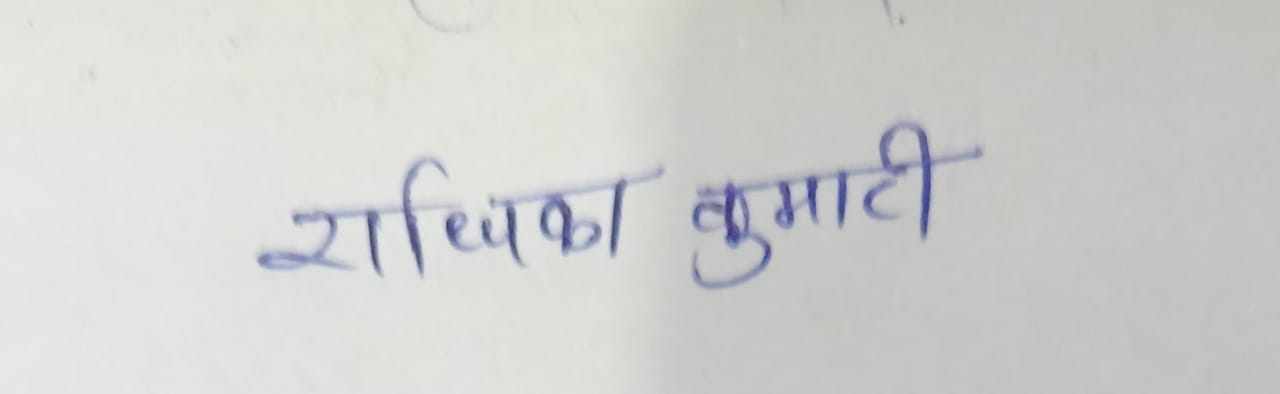 राधिका कुमारी